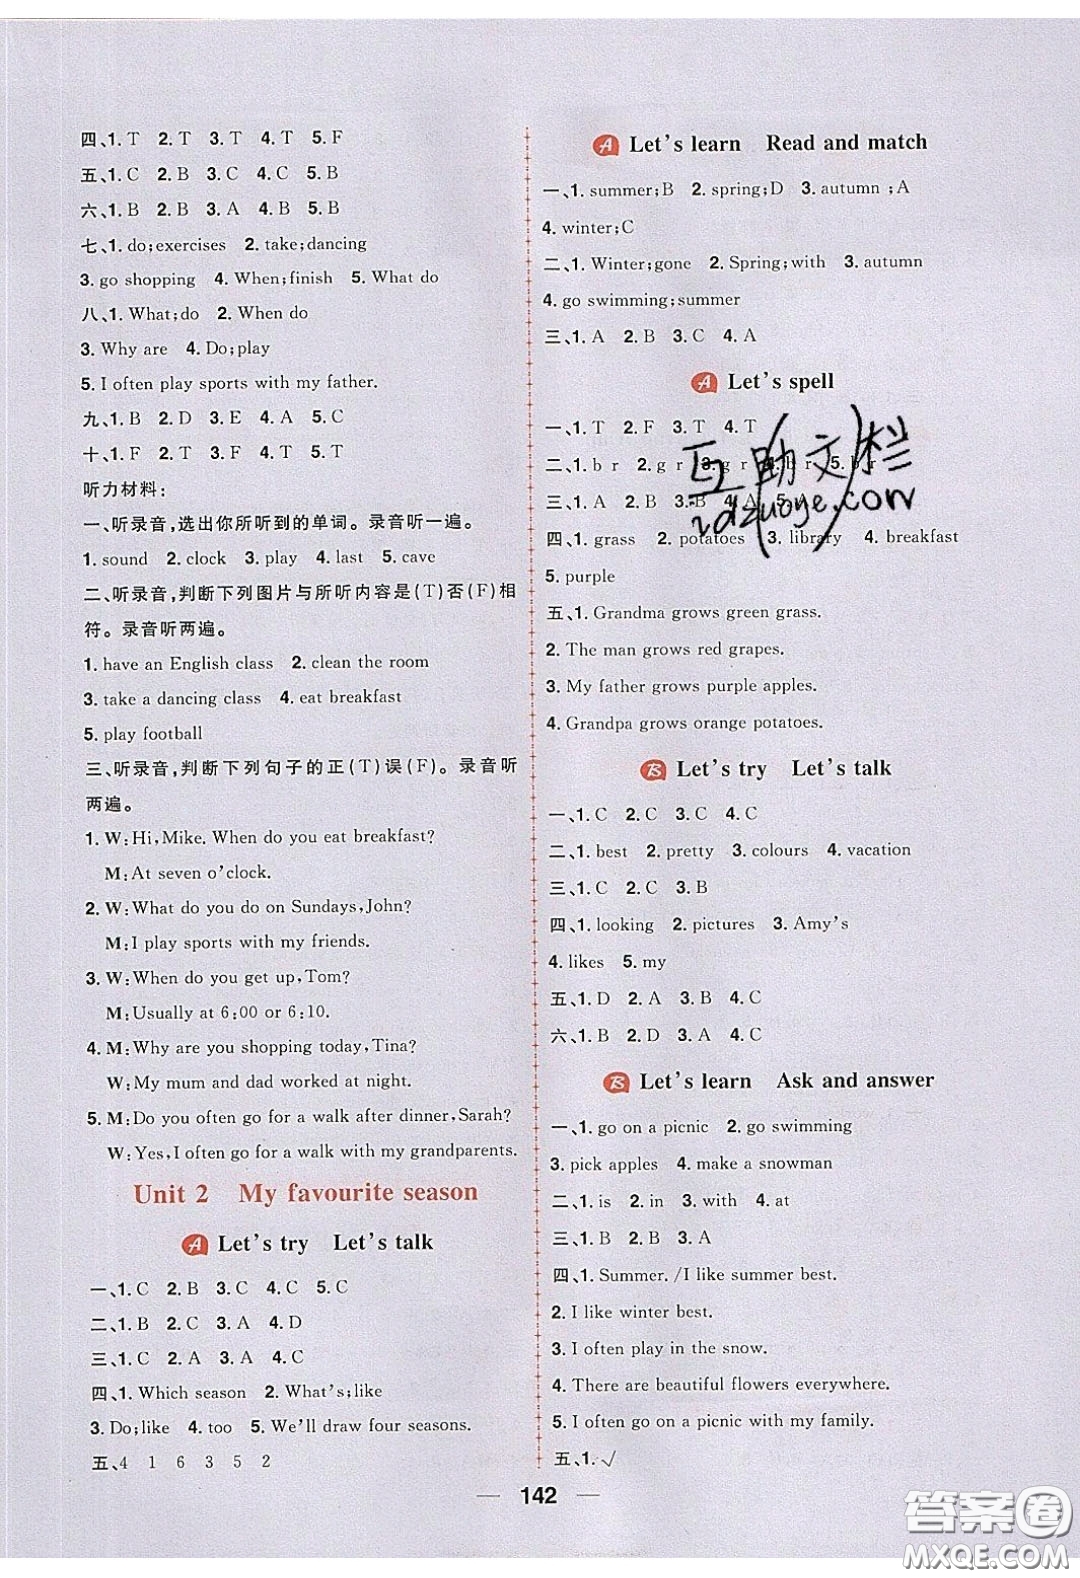 四、1. T 2. T 3. T 4. T 5. F
五、1. C 2. B 3. C 4. C 5. B
六、1. B 2. B 3. A 4. B 5. B
七、1. do;exercises 2. take;dancing
3. go shopping 4. When;finish 5. What do
八、1. What;do 2. When do
3. Why are 4. Do;play
5. I often play sports with my father.
九、1. B 2. D 3. E 4. A 5. C
十、1. F 2. T 3. F 4. T 5. T
听力材料:
一、听录音,选出你所听到的单词。录音听一遍。
1. sound 2. clock 3. play 4. last 5. cave
二、听录音,判断下列图片与所听内容是(T)否(F)相
符。录音听两遍。
1. have an English class 2. clean the room
3. take a dancing class 4. eat breakfast
5. play football
三、听录音,判断下列句子的正(T)误(F)。录音听
两遍。
1. W:Hi,Mike. When do you eat breakfast?
M:At seven o'clock.
2. W:What do you do on Sundays,John?
M:I play sports with my friends.
3. W:When do you get up,Tom?
M:Usually at 6:00 or 6:10.
4. M:Why are you shopping today,Tina?
W:My mum and dad worked at night.
5. M:Do you often go for a walk after dinner,Sarah?
W:Yes,I often go for a walk with my grandparents.
Unit 2 My favourite season
A Let's try Let's talk
一、1. C 2. B 3. C 4. C 5. C
二、1. B 2. C 3. A 4. D
三、1. C 2. A 3. A 4. C
四、1. Which season 2. What's;like
3. Do;like 4. too 5. We'll draw four seasons.
五、4 1 6 3 5 2
A Let's learn Read and match
一、1. summer;B 2. spring;D 3. autumn ;A
4. winter;C
二、1. Winter;gone 2. Spring;with 3. autumn
4. go swimming;summer
三、1. A 2. B 3. C 4. A
A Let's spell
一、1. T 2. F 3. T 4. T
二、1. b r 2. g r 3. g r 4. b r 5. b r
三、1. A 2. B 3. B 4. A 5.
四、1. grass 2. potatoes 3. library 4. breakfast
5. purple
五、1. Grandma grows green grass.
2. The man grows red grapes.
3. My father grows purple apples.
4. Grandpa grows orange potatoes.
B Let's try Let's talk
一、1. C 2. C 3. C 4. C
二、1. best 2. pretty 3. colours 4. vacation
三、1. C 2. C 3. B
四、1. looking 2. pictures 3. Amy's
4. likes 5. my
五、1. D 2. A 3. B 4. C
六、1. B 2. D 3. A 4. C
B Let's learn Ask and answer
一、1. go on a picnic 2. go swimming
3. pick apples 4. make a snowman
二、1. is 2. in 3. with 4. at
三、1. B 2. B 3. A
四、1. Summer. /I like summer best.
2. I like winter best.
3. I often play in the snow.
4. There are beautiful flowers everywhere.
5. I often go on a picnic with my family.
五、1. √
142
互助文栏
zdzuoye.com
答案圈
MXQE.COM